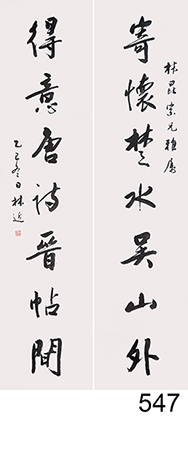 林昆宗兄雅屬
寄懷楚水吳山外
得意唐詩晉帖間
乙巳冬日林近
547